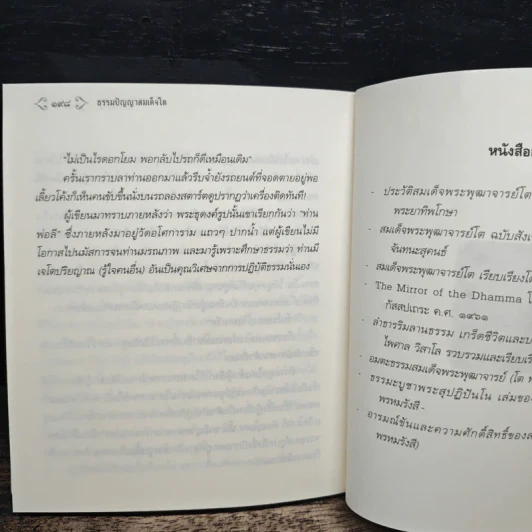 ๑๙๘ ธรรมปัญญาสมเด็จโต
"ไม่เป็นไรดอกโยม พอกลับไปรถก็ดีเหมือนเดิม"
ครั้นเรากราบลาท่านออกมาแล้วรีบจ้ำยังรถยนต์ที่จอดตายอยู่พอ
เลี้ยวโค้งก็เห็นคนขับขึ้นนั่งบนรถลองสตาร์ตดูปรากฏว่าเครื่องติดทันที!
ผู้เขียนมาทราบภายหลังว่า พระธุดงค์รูปนั้นเขาเรียกกันว่า "ท่าน
พ่อลี" ซึ่งภายหลังมาอยู่วัดอโศการาม แถวๆ ปากน้ำ แต่ผู้เขียนไม่มี
โอกาสไปนมัสการจนท่านมรณภาพ และมารู้เพราะศึกษาธรรมว่า ท่านมี
เจโตปริยญาณ (รู้ใจคนอื่น) อันเป็นคุณวิเศษจากการปฏิบัติธรรมนั่นเอง
หนังสือ
- ประวัติสมเด็จพระพุฒาจารย์โต
พระยาทิพโกษา
- สมเด็จพระพุฒาจารย์โต ฉบับสังเ
จันทนะสุคนธ์
- สมเด็จพระพุฒาจารย์โต เรียบเรียงโด
- The Mirror of the Dhamma โ
กัสสปเถระ ค.ศ. ๑๙๖๑
- ลำธารริมลานธรรม เกร็ดชีวิตและป
ไพศาล วิสาโล รวบรวมและเรียบเรีย
- อมตะธรรมสมเด็จพระพุฒาจารย์ (โต
- ธรรมะบูชาพระสุปฏิปันโน เล่มของ
พรหมรังสี-
- อารมณ์ขันและความศักดิ์สิทธิ์ของส
พรหมรังสี)